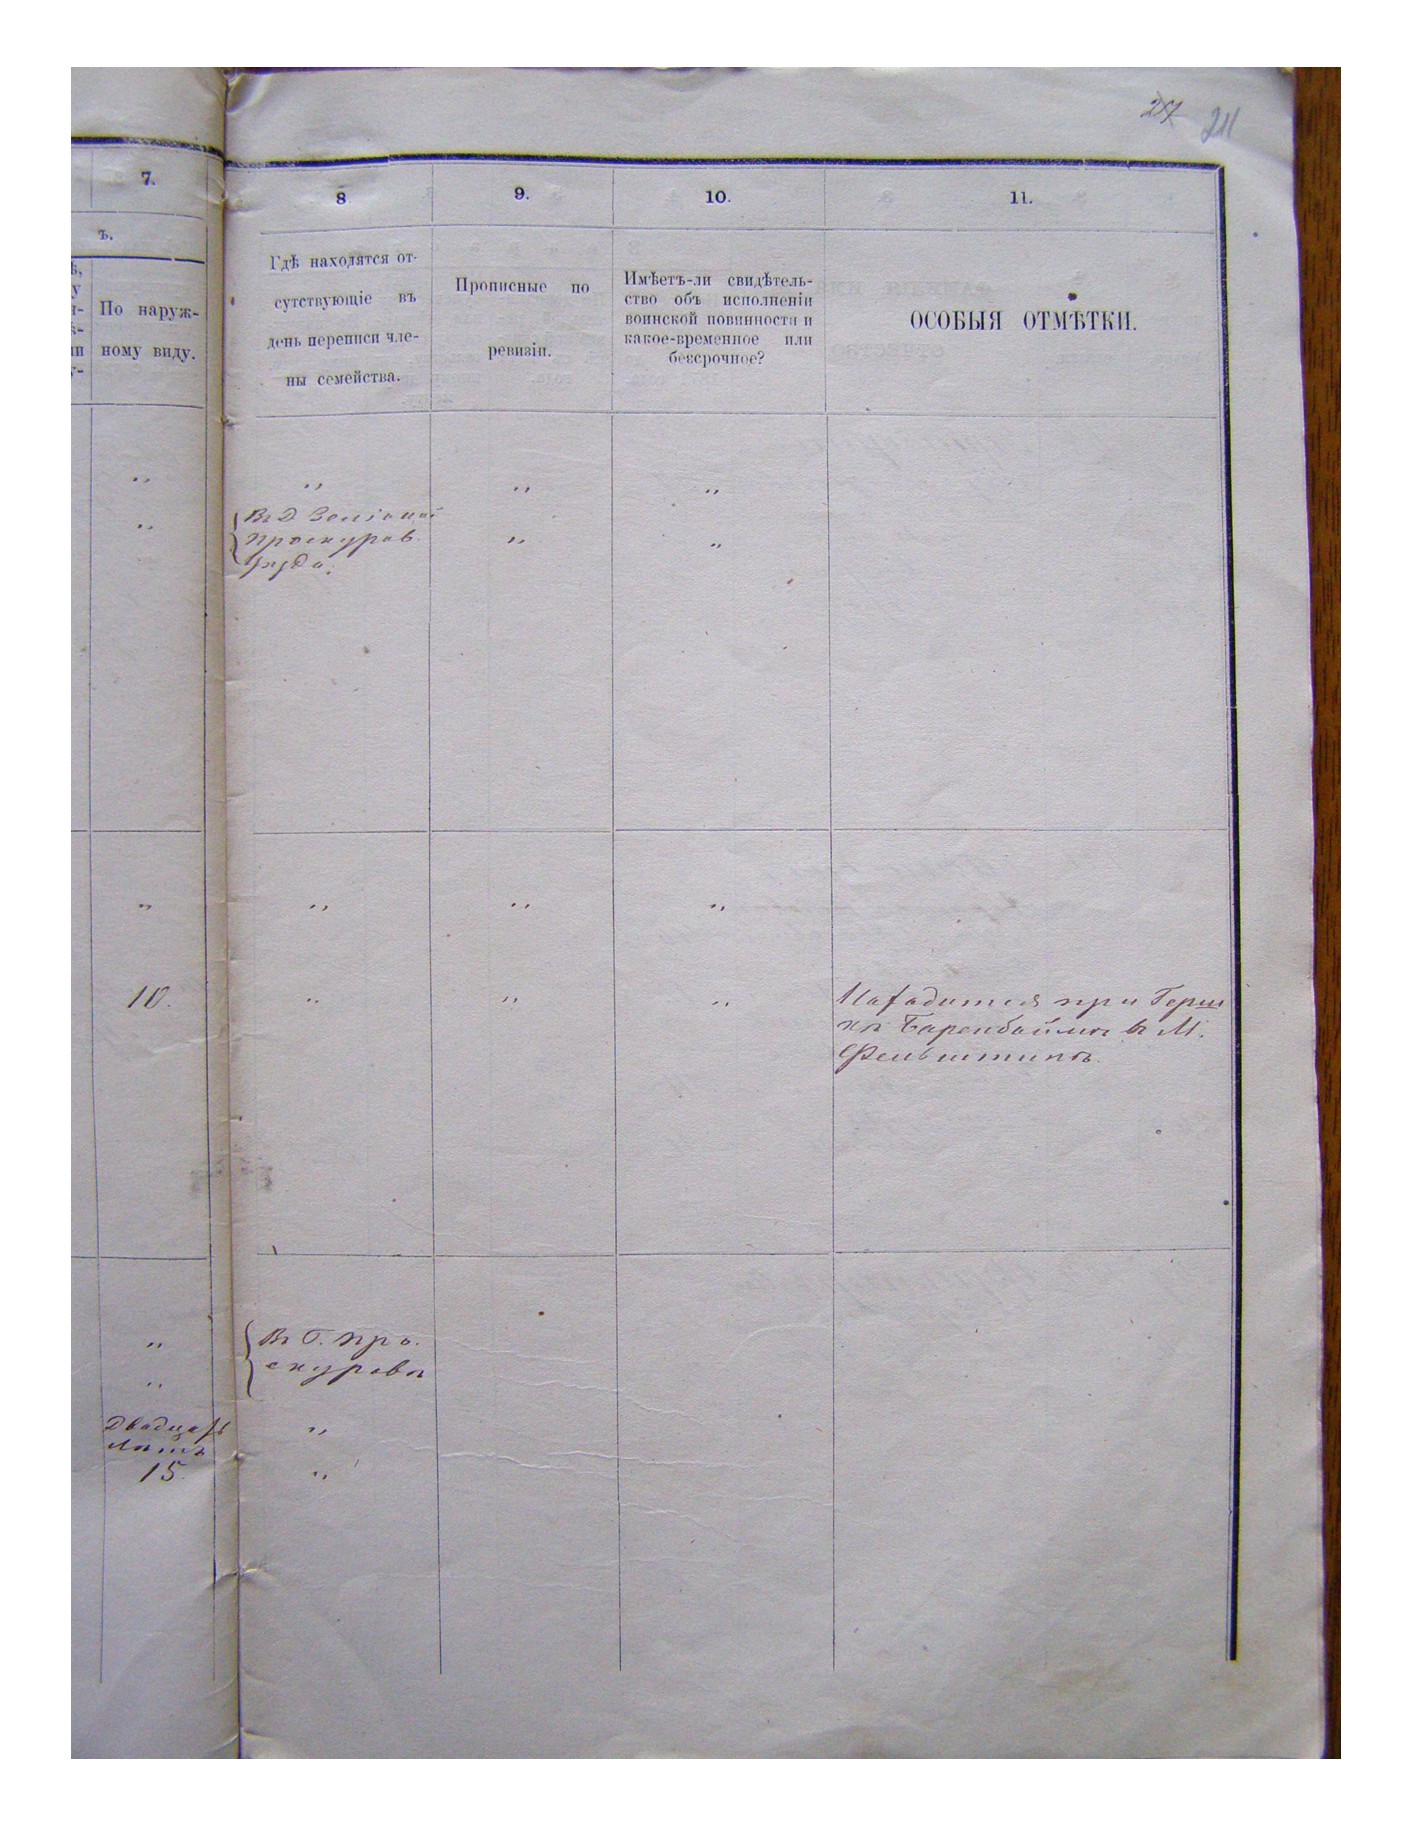 211
7.
8
9.
10.
11.
ъ.
ѣ,
у
По наруж-
ному виду.
Гдѣ находятся от-
сутствующіе въ
день переписи чле-
ны семейства.
Прописные по
ревизіи.
Имѣетъ-ли свидѣтель-
ство объ исполненіи
воинской повинности и
какое-временное или
безсрочное?
ОСОБЫЯ ОТМѢТКИ.
„ „ „ „
Въ Д.
„ Проскуров. „ „
уѣзда.
„ „ „ „
10. „ „ „ Находится при Герш
кѣ Баренбаймѣ въ М.
Фельштинѣ.
„ Въ Г. Про-
„ скуровѣ
Двадцать „
лѣтъ
15. „